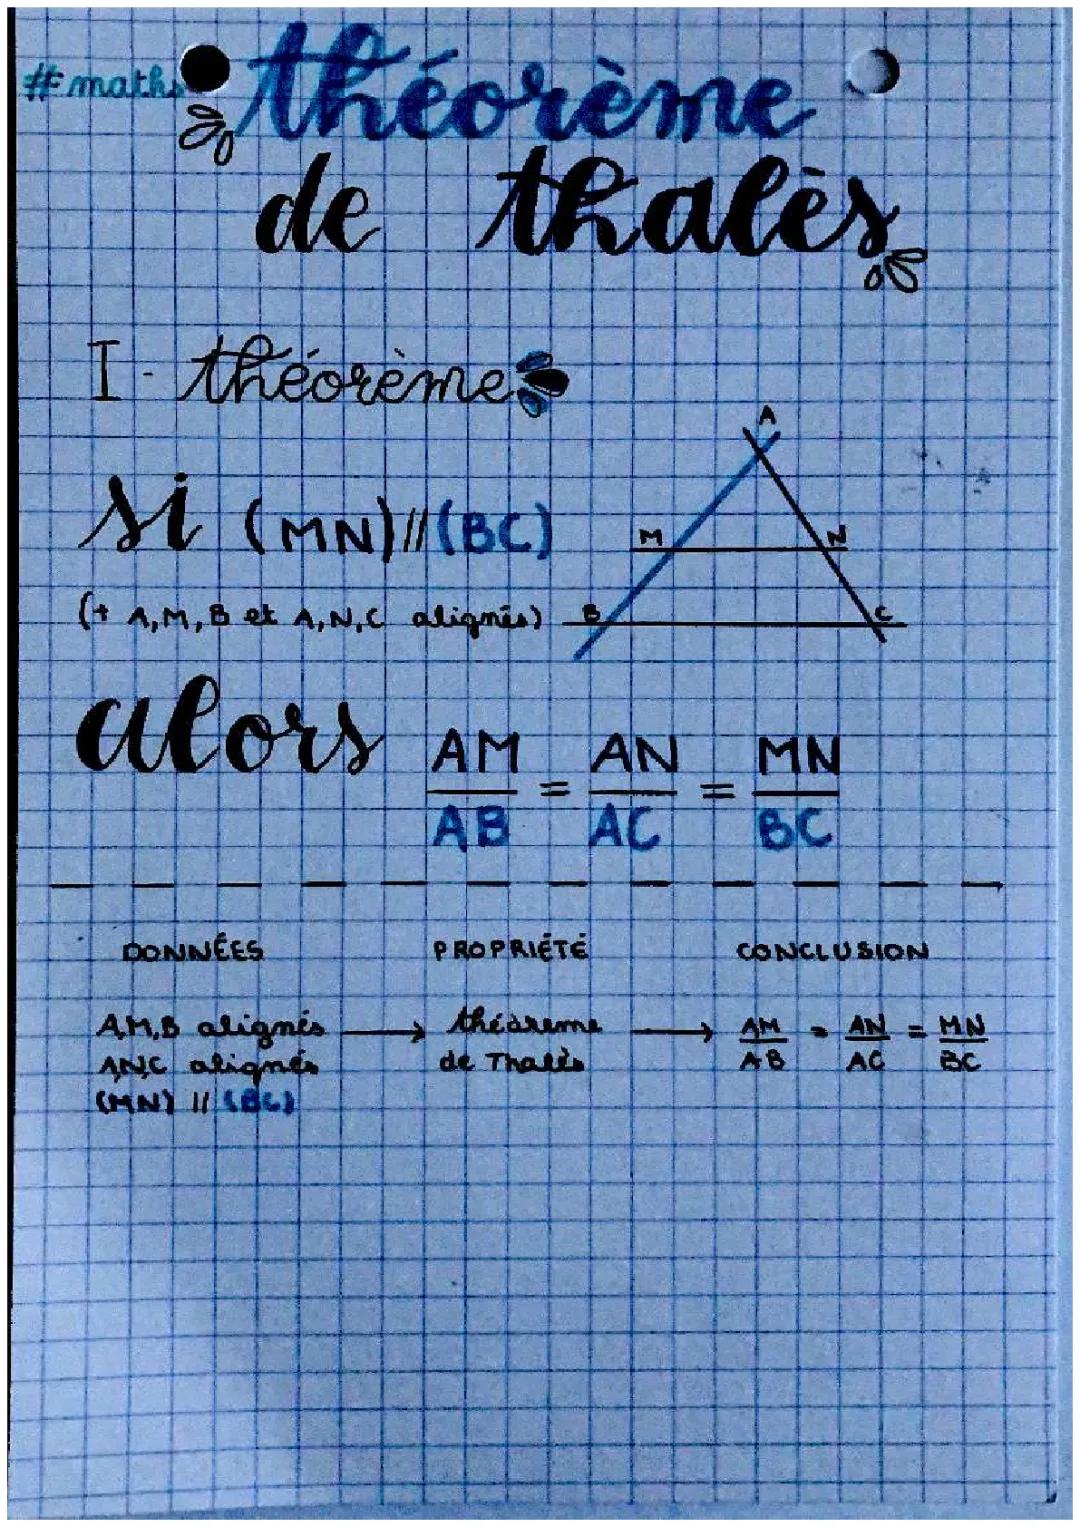 #maths
théorème
de thalès
I - théorème
A
si (MN)//(BC)
M N
(+ A,M,B et A,N,C alignés)
B C
alors AM/AB = AN/AC = MN/BC
DONNÉES PROPRIÉTÉ CONCLUSION
A,M,B alignés → théorème → AM/AB = AN/AC = MN/BC
A,N,C alignés de Thalès
(MN) // (BC)